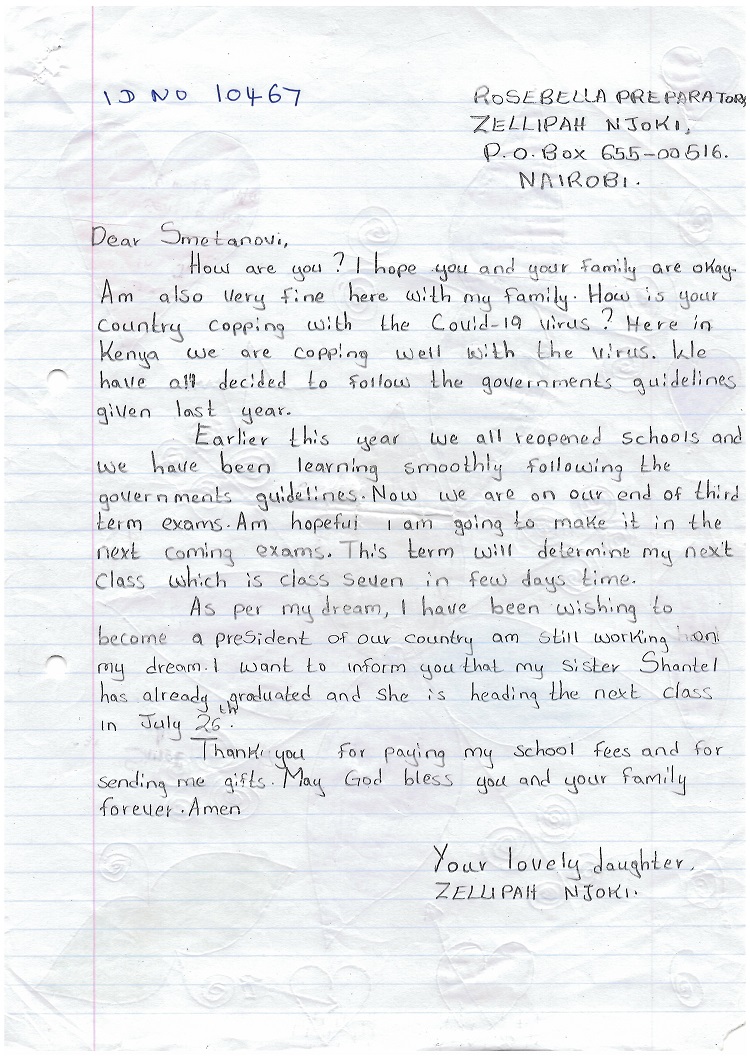 ID NO 10467
ROSEBELLA PREPARATORY
ZELLIPAH NJOKI,
P.O. Box 655-00516.
NAIROBI.
Dear Smetanovi,
How are you? I hope you and your family are okay.
Am also very fine here with my family. How is your
country copping with the Covid-19 virus? Here in
Kenya we are copping well with the virus. We
have all decided to follow the governments guidelines
given last year.
Earlier this year we all reopened schools and
we have been learning smoothly following the
governments guidelines. Now we are on our end of third
term exams. Am hopeful I am going to make it in the
next coming exams. This term will determine my next
class which is class seven in few days time.
As per my dream, I have been wishing to
become a president of our country am still working on
my dream. I want to inform you that my sister Shantel
has already graduated and she is heading the next class
in July 26th.
Thank you for paying my school fees and for
sending me gifts. May God bless you and your family
forever. Amen
Your lovely daughter,
ZELLIPAH NJOKI.